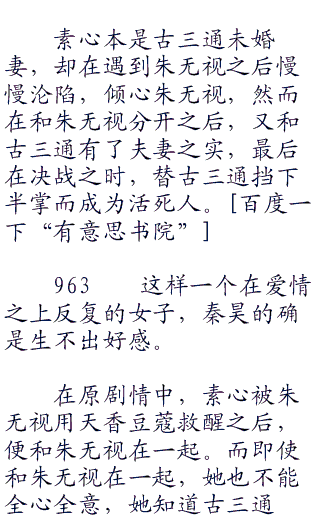 素心本是古三通未婚
妻，却在遇到朱无视之后慢
慢沦陷，倾心朱无视，然而
在和朱无视分开之后，又和
古三通有了夫妻之实，最后
在决战之时，替古三通挡下
半掌而成为活死人。[百度一
下“有意思书院”]
963 这样一个在爱情
之上反复的女子，秦昊的确
是生不出好感。
在原剧情中，素心被朱
无视用天香豆蔻救醒之后，
便和朱无视在一起。而即使
和朱无视在一起，她也不能
全心全意，她知道古三通